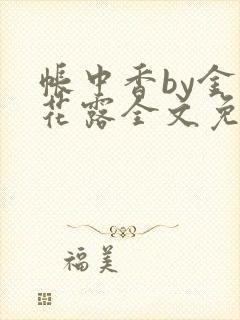 帐中香by金
花露全文免
福美